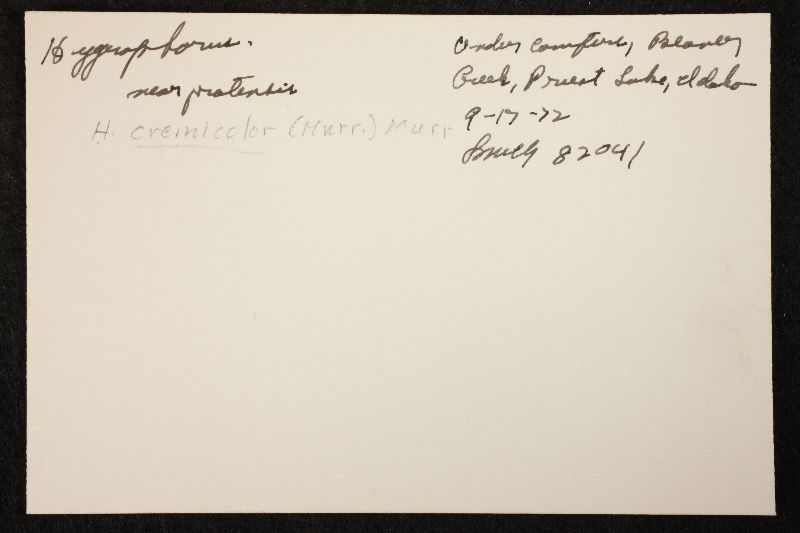 Hygrophorus.
near pratensis
H. cremicolor (Murr.) Murr
Under conifers, Beaver
Creek, Priest Lake, Idaho
9-17-72
Smith 82041